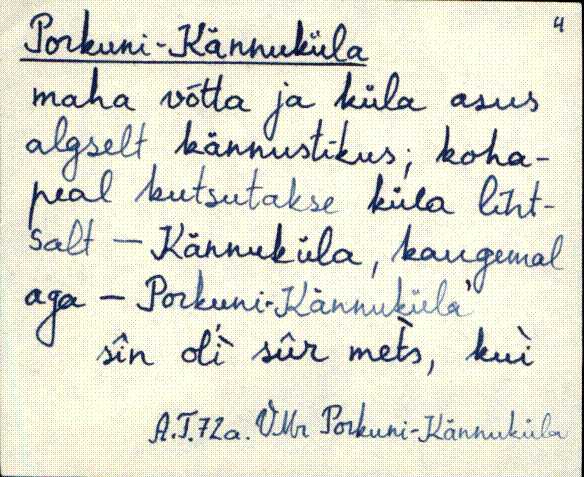 4
Porkuni-Kännuküla
maha võtta ja küla asus
algselt kännustikus; koha-
peal kutsutakse küla liht-
salt — Kännuküla, kaugemal
aga — Porkuni-Kännuküla'
sîn olì sûr mets, kui
A.T.72a. VMr Porkuni-Kännuküla